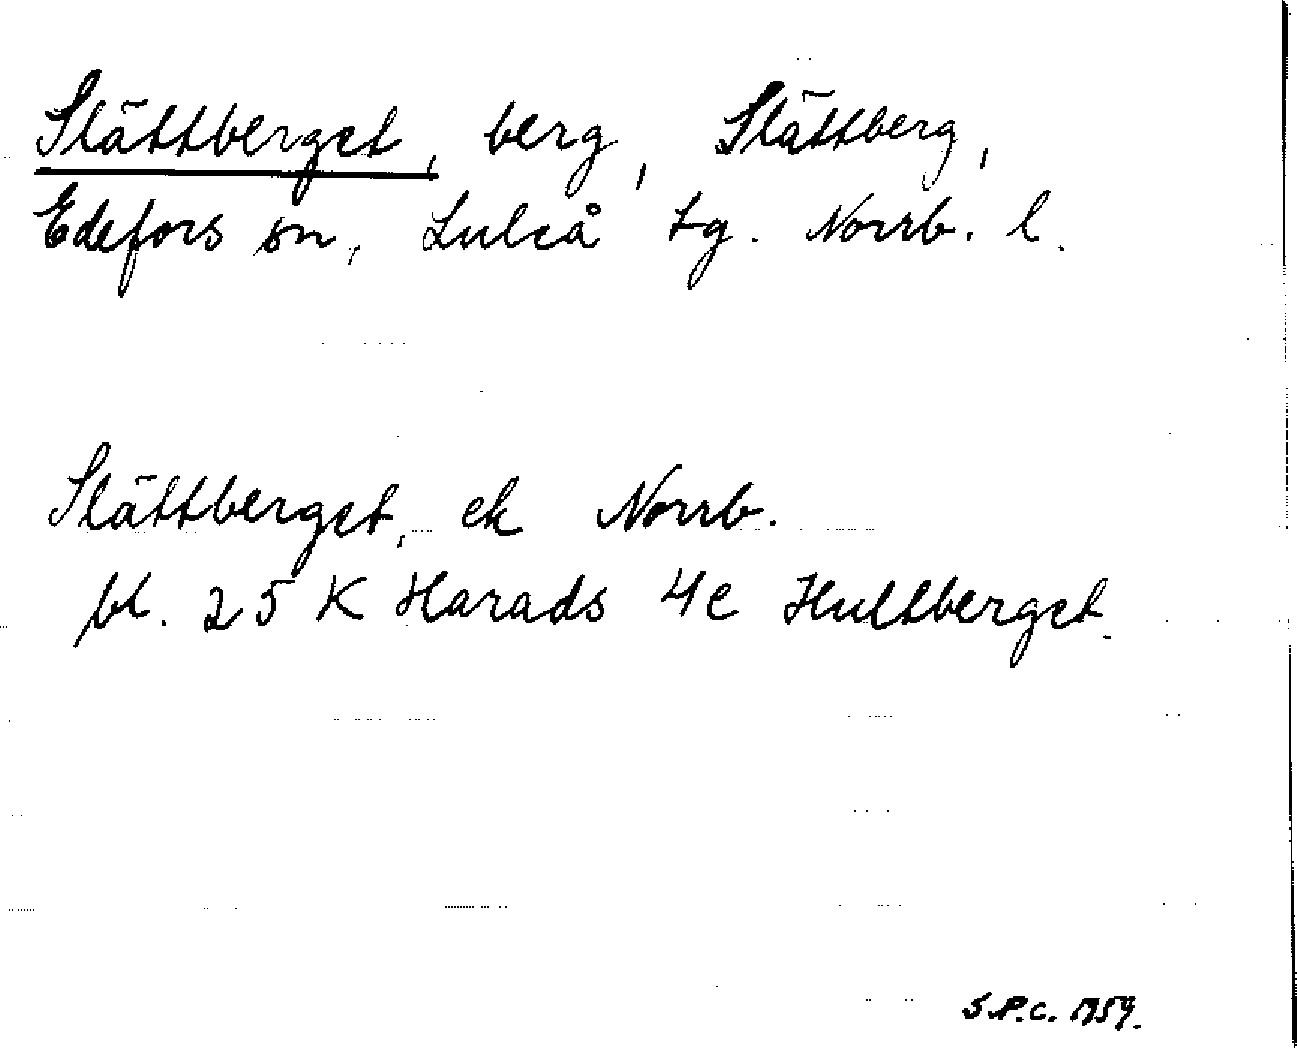 Slättberget, berg, Slättberg,
Edefors sn, Luleå tg. Norrb. l.
Slättberget, ek Norrb.
bl. 25 K Harads 4e Hultberget.
S.P.C. 1959.